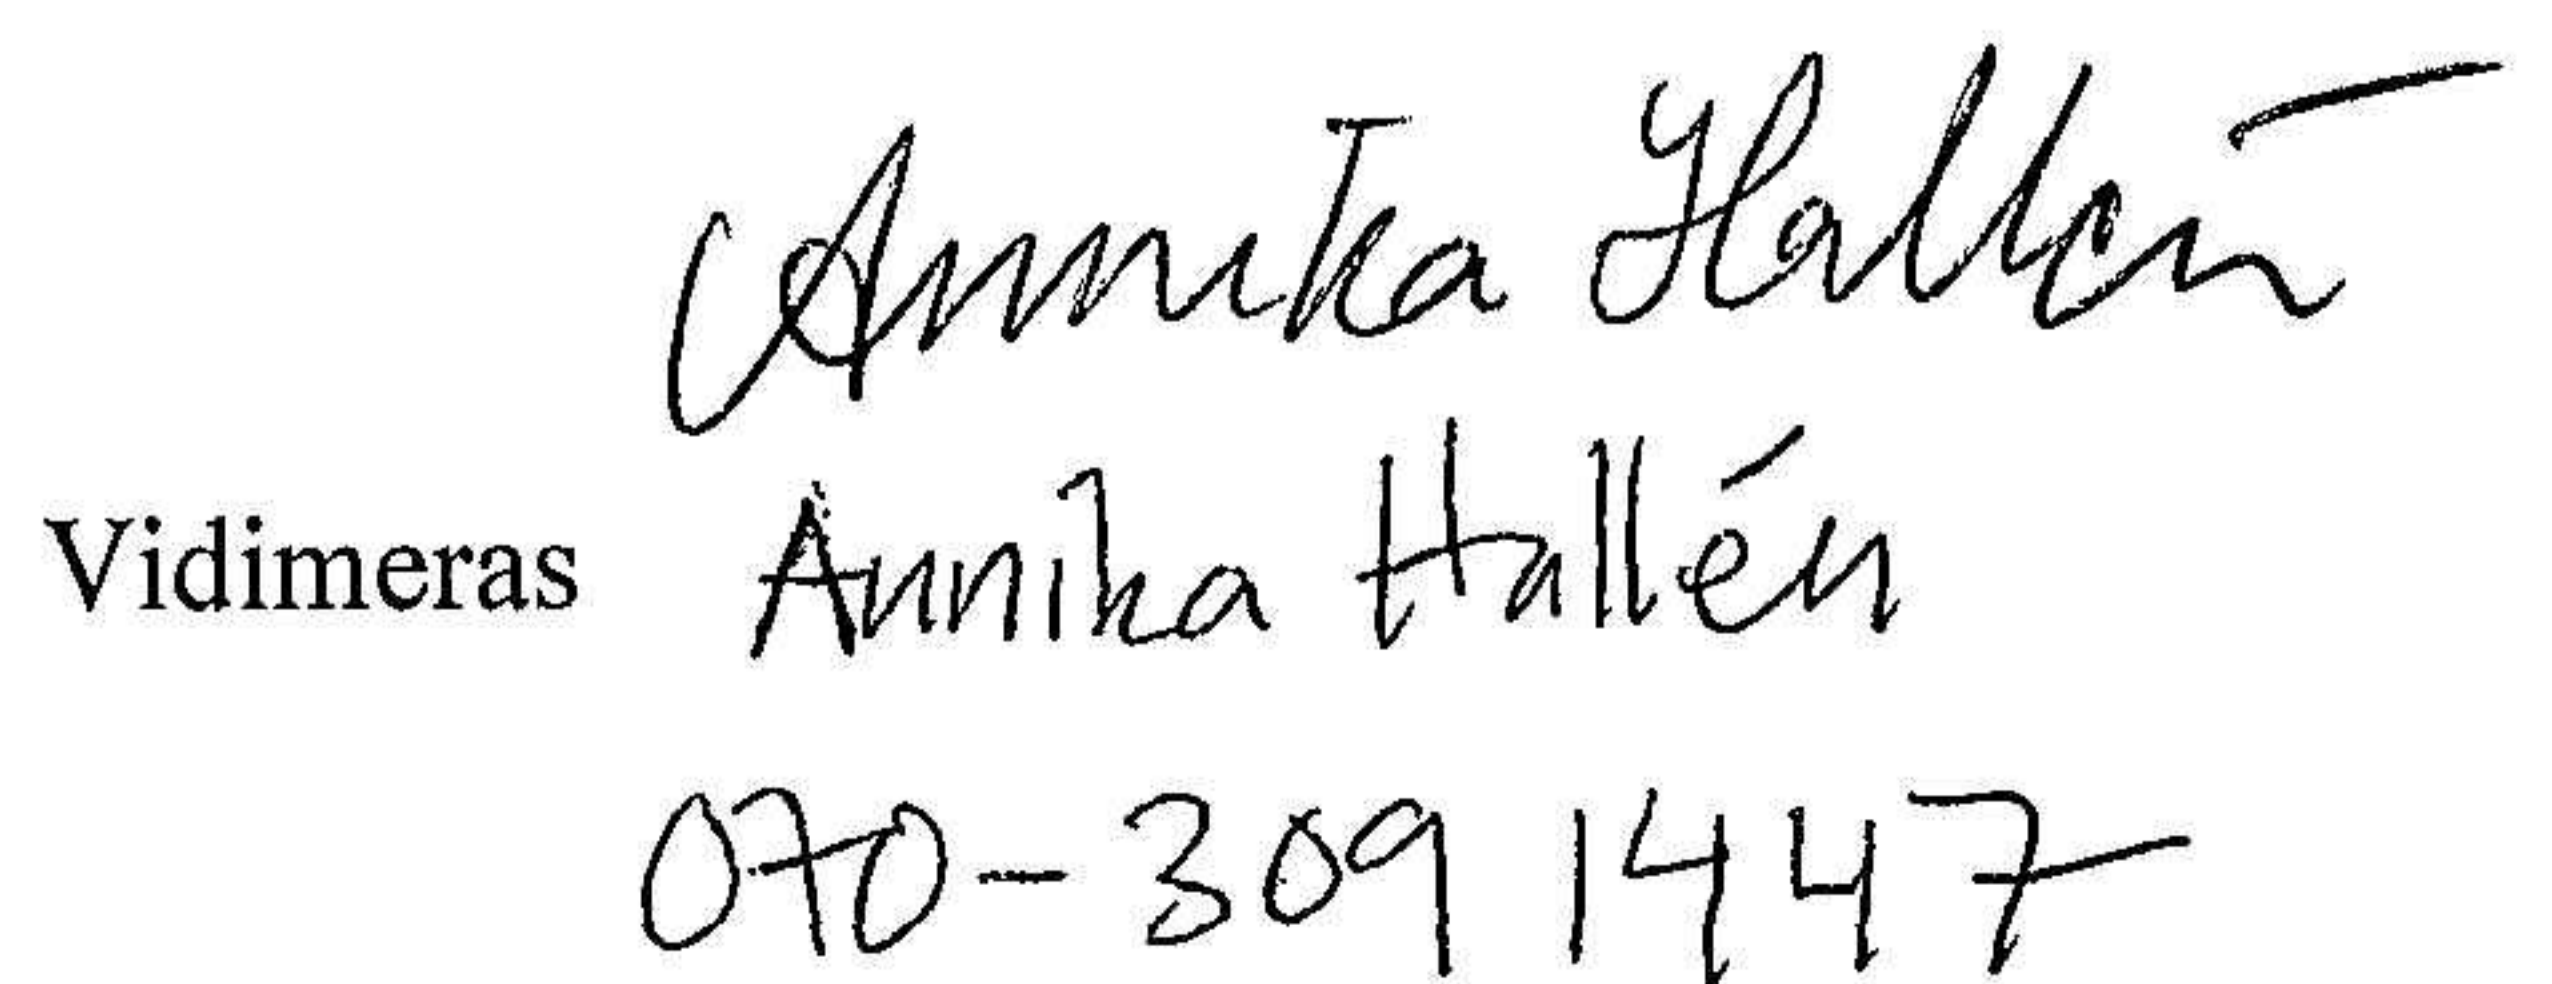 Annika Hallén
Vidimeras Annika Hallén
070-309 1447